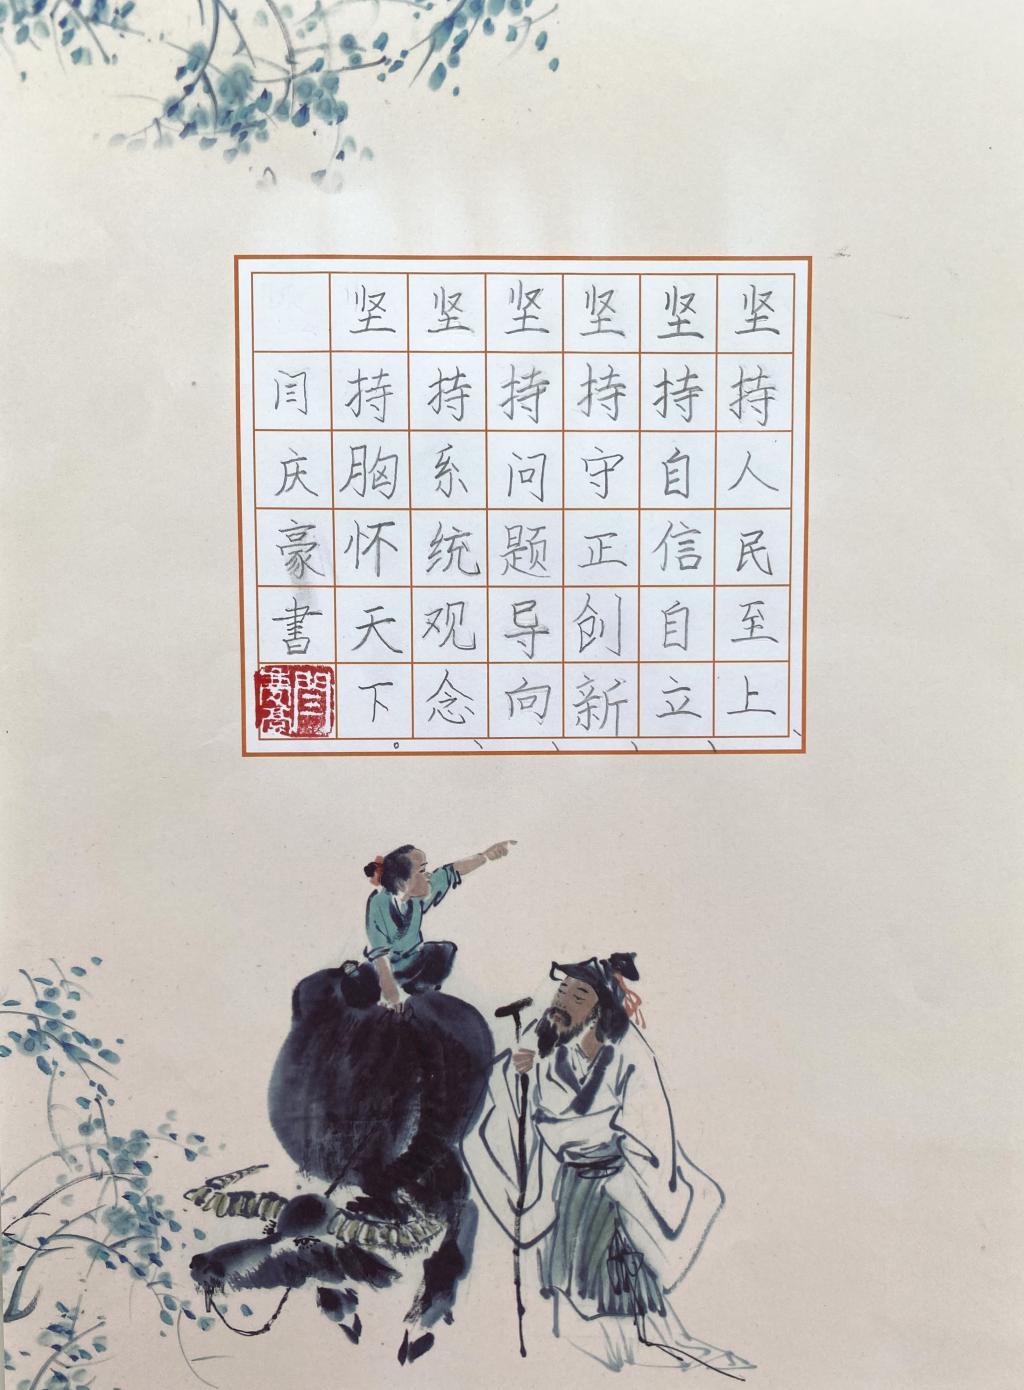 坚持人民至上、
坚持自信自立、
坚持守正创新、
坚持问题导向、
坚持系统观念、
坚持胸怀天下。
闫庆豪書